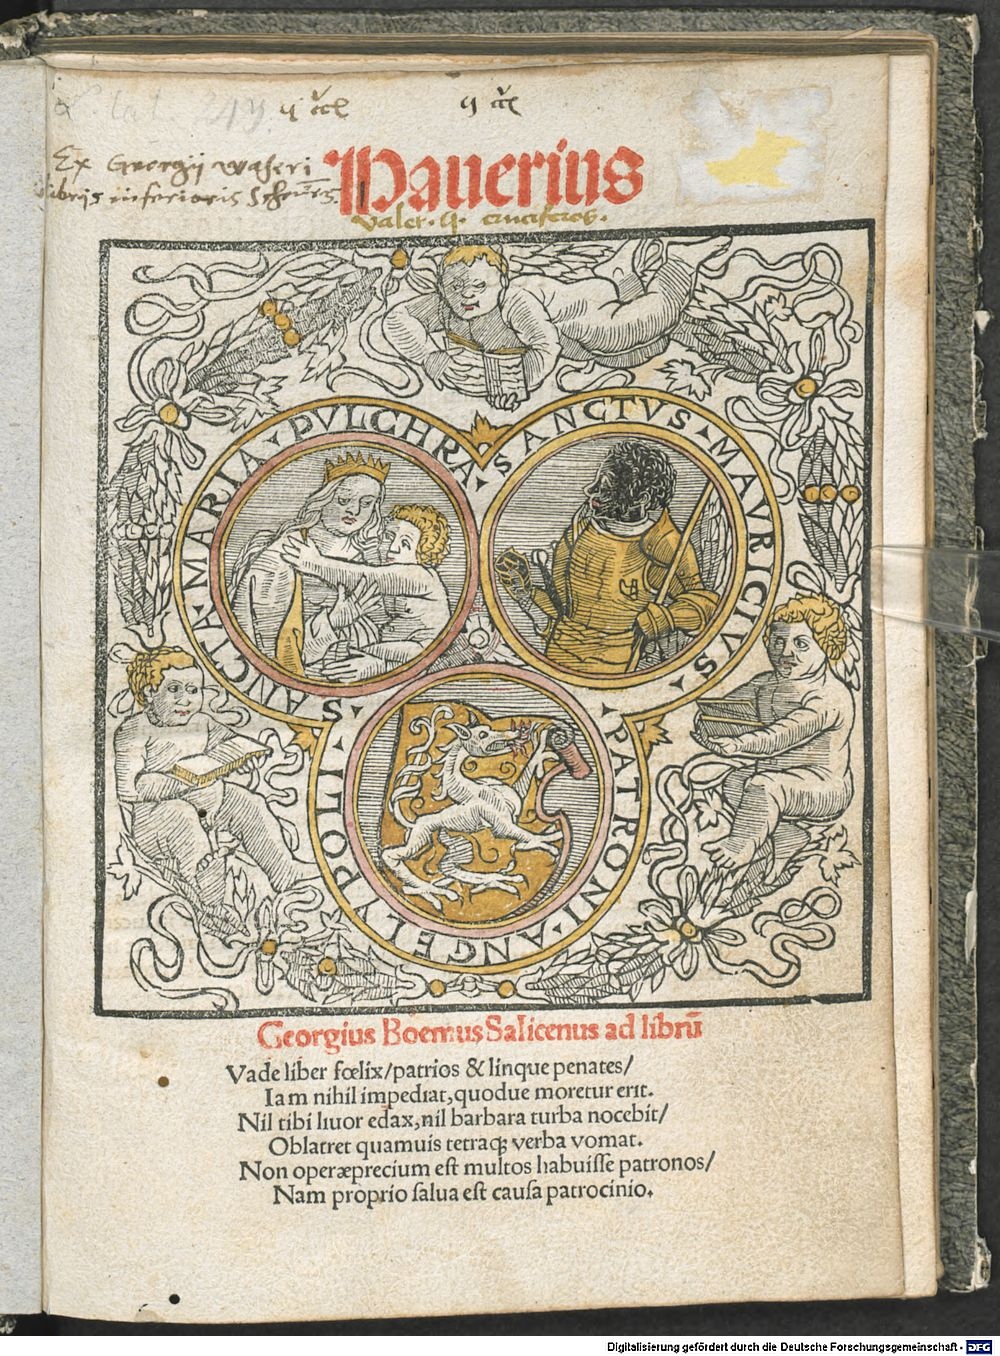 Ex Georgij Waseri
libris inferioris
Pauerius
Valer. q. cruciferos.
SANCTA · MARIA · PVLCHRA ·
SANCTVS · MAVRICIVS ·
· PATRONI · ANGELYPOLIS ·
Georgius Boemus Salicenus ad librū
Vade liber fœlix/patrios & linque penates/
Iam nihil impediat, quodue moretur erit.
Nil tibi liuor edax, nil barbara turba nocebit/
Oblatret quamuis tetraq; verba vomat.
Non operæprecium est multos habuisse patronos/
Nam proprio salua est causa patrocinio.
Digitalisierung gefördert durch die Deutsche Forschungsgemeinschaft - DFG